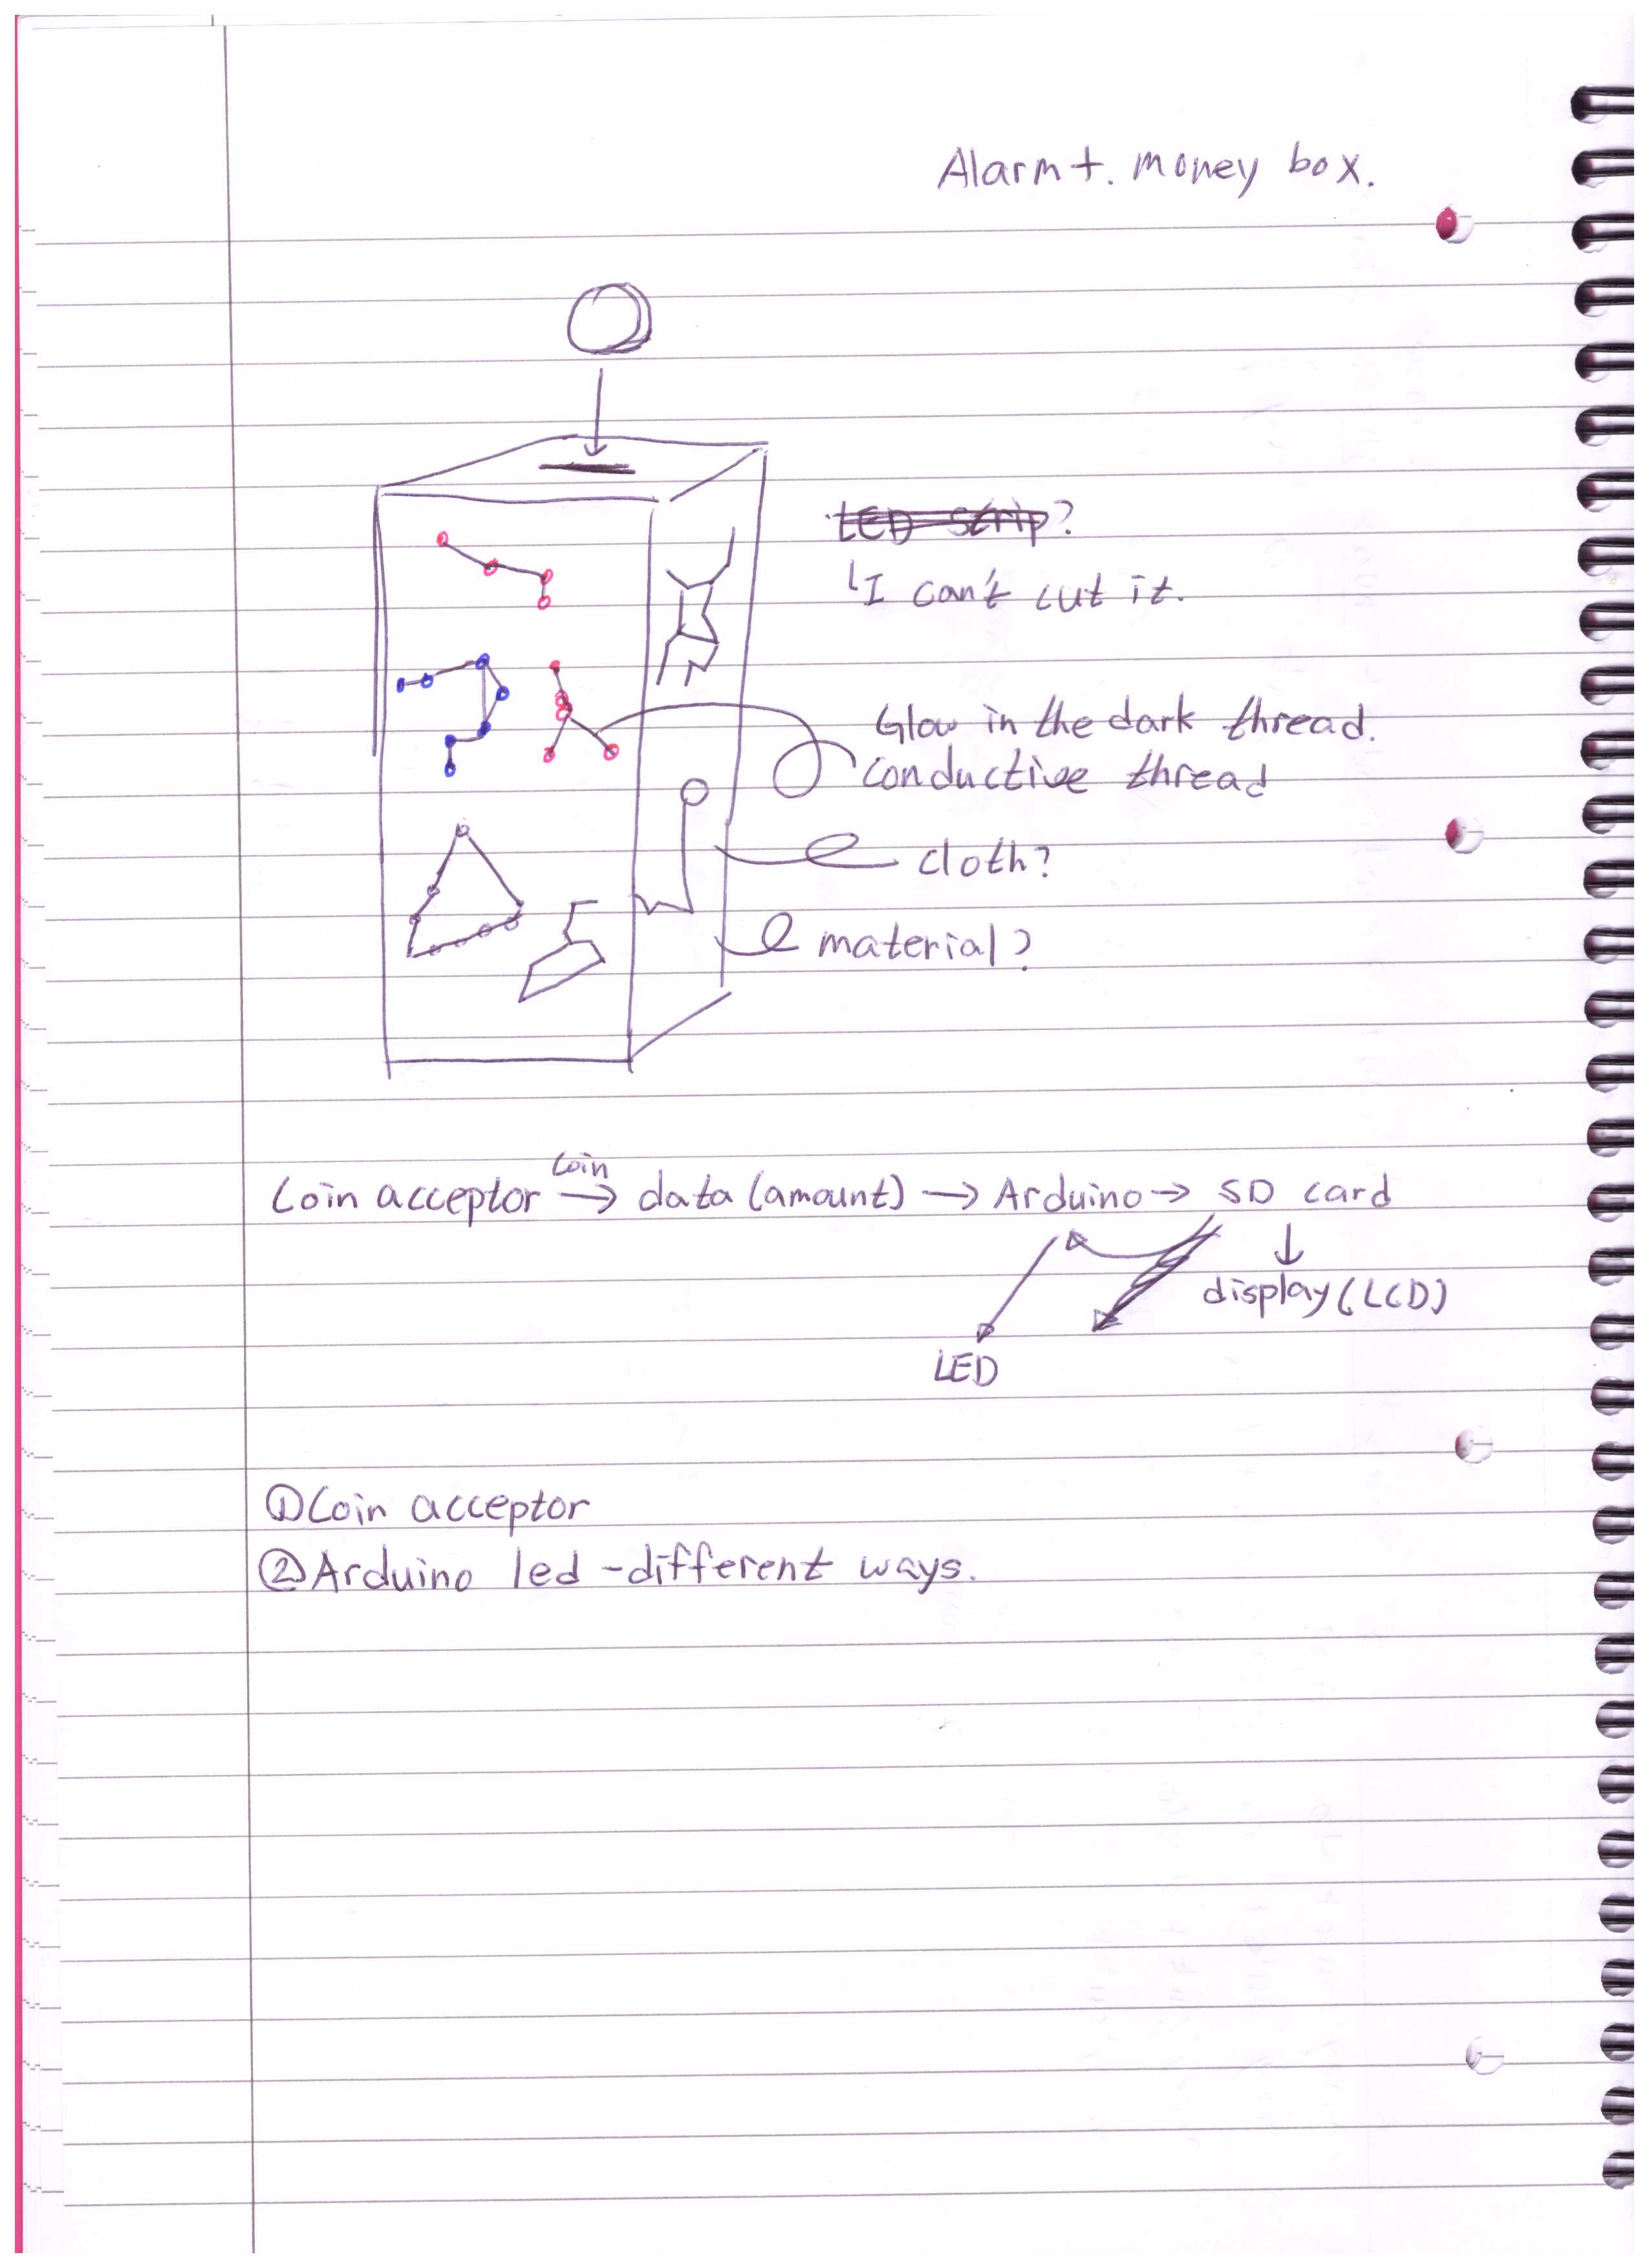 Alarm +. money box.
LED strip?
I can't cut it.
Glow in the dark thread.
conductive thread
cloth?
material?
Coin acceptor coin → data (amount) → Arduino → SD card
display (LCD)
LED
① Coin acceptor
② Arduino led - different ways.